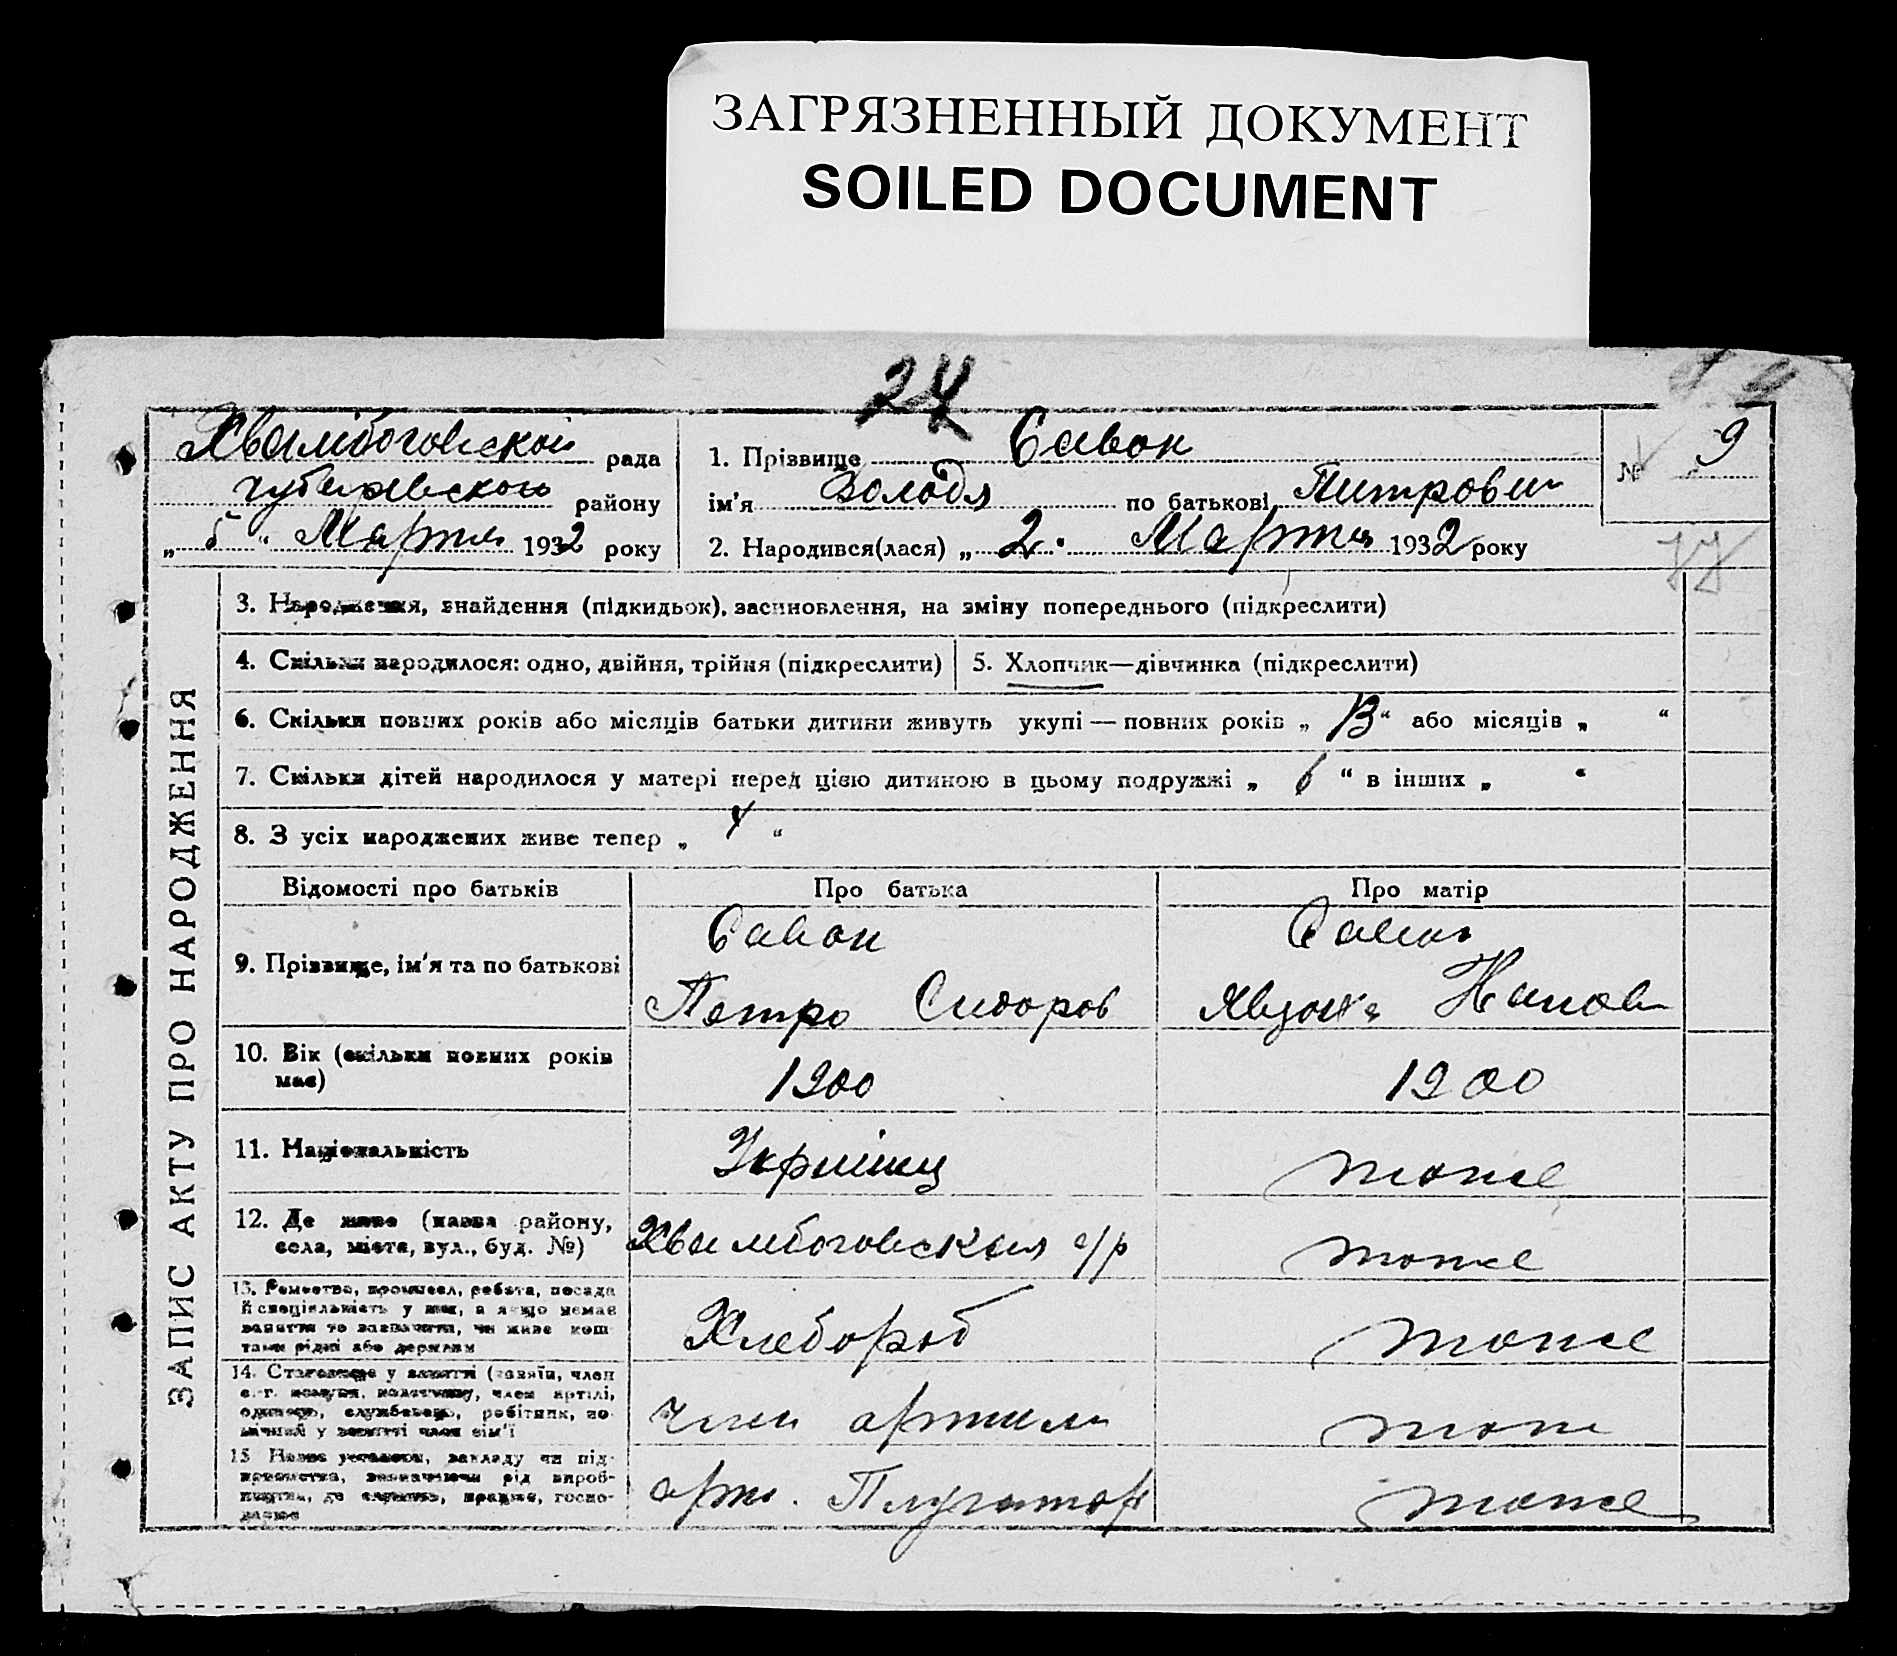 ЗАГРЯЗНЕННЫЙ ДОКУМЕНТ
SOILED DOCUMENT
24
рада
району
„ 5 " Марта 1932 року
1. Прізвище Савон
ім'я Володя по батькові
2. Народився(лася) „ 2. " Марта 1932 року
№ 9
ЗАПИС АКТУ ПРО НАРОДЖЕННЯ
3. Народження, знайдення (підкидьок), засиновлення, на зміну попереднього (підкреслити)
4. Скільки народилося: одно, двійня, трійня (підкреслити)
5. Хлопчик—дівчинка (підкреслити)
6. Скільки повних років або місяців батьки дитини живуть укупі — повних років „ 13 " або місяців „ "
7. Скільки дітей народилося у матері перед цією дитиною в цьому подружжі „ 6 " в інших „ "
8. З усіх народжених живе тепер „ 4 "
Відомості про батьків
Про батька
Про матір
9. Прізвище, ім'я та по батькові
Савон
Петро Сидоров
Савон
10. Вік (скільки повних років має)
1900
1900
11. Національність
тоже
12. Де живе (назва району,
села, міста, вул., буд. №)
с/р
тоже
13. Ремество, промисел, робота, посада
й спеціяльність у них, а якщо немає
заняття то зазначити, чи живе кош-
тами рідні або держави
Хлебороб
тоже
14. Становище у занятті (хазяїн, член
член артілі,
одинець, службовець, робітник, по-
мічний у занятті член сім'ї
член артили
тоже
15. Назва установи, закладу чи під-
приємства, зазначаючи рід вироб-
ництва, де служить, працює, госпо-
дарює
арт. Плугатор
тоже